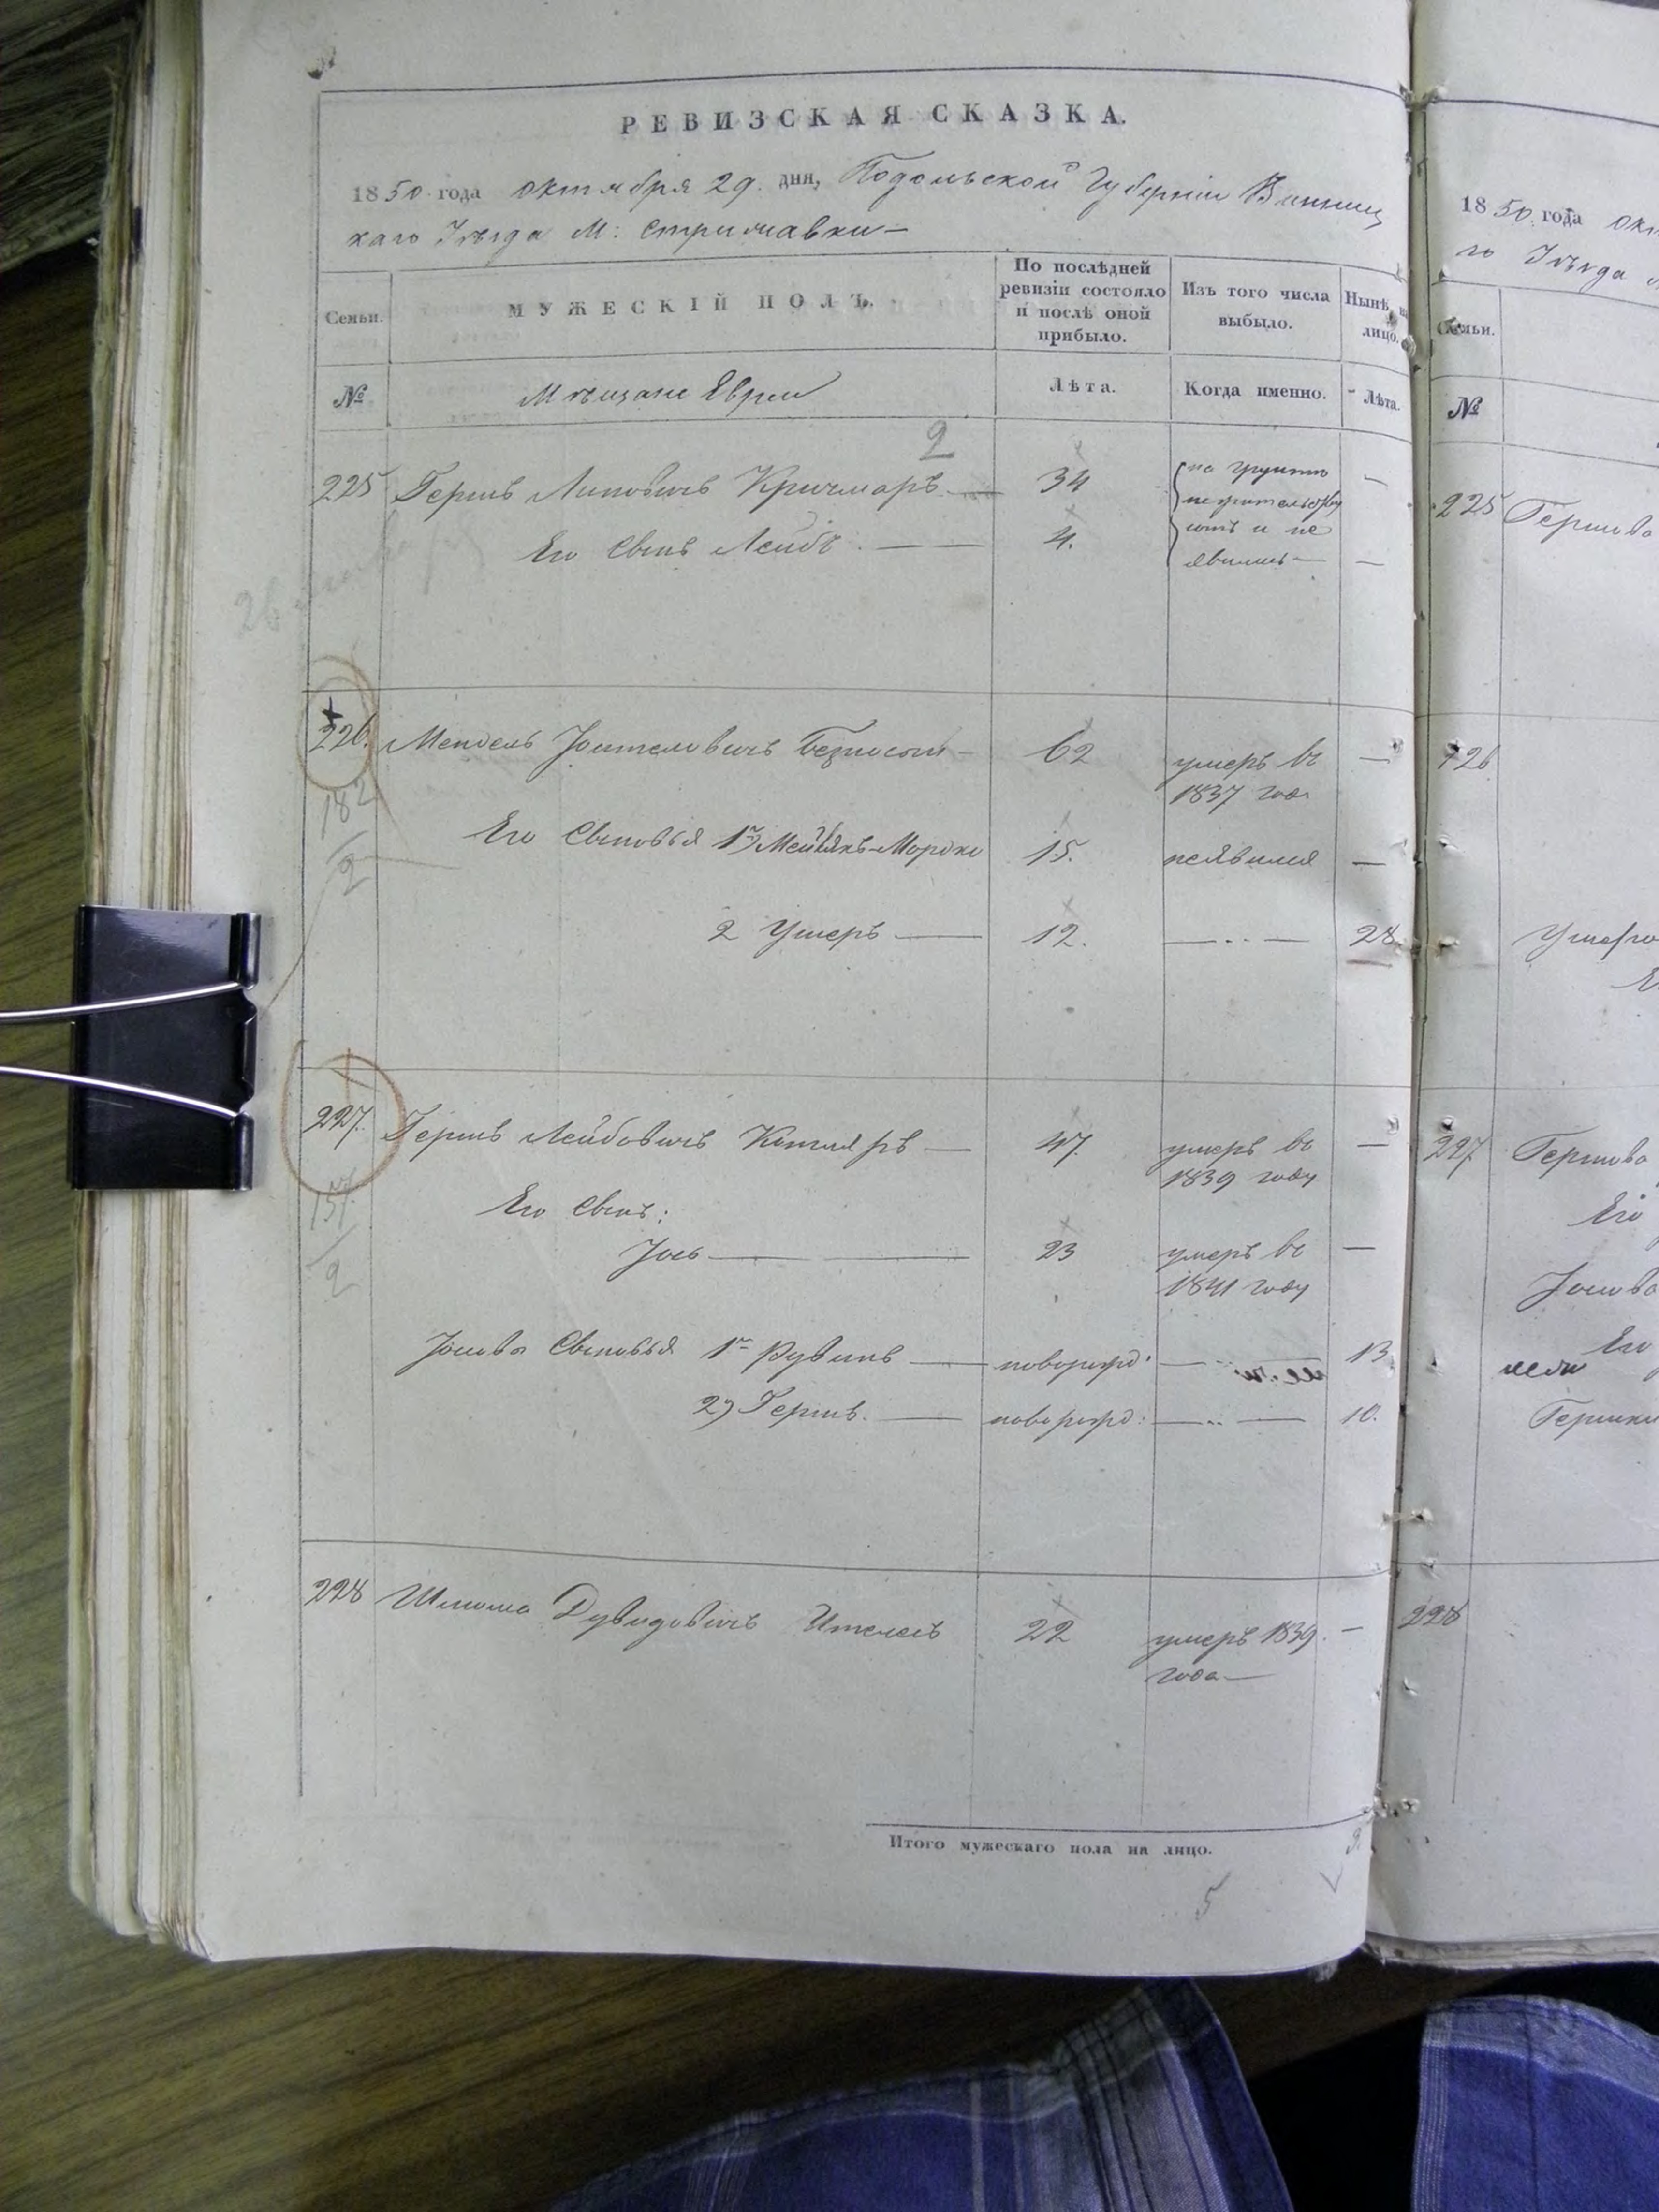 РЕВИЗСКАЯ СКАЗКА.
1850 года октября 29. дня, Подольской Губерніи Винниц
каго Уѣзда М: Стрижавки—
Семьи.
МУЖЕСКІЙ ПОЛЪ.
По послѣдней ревизіи состояло и послѣ оной прибыло.
Изъ того числа выбыло.
Нынѣ на лицо.
№
Мѣщане Евреи
Лѣта.
Когда именно.
Лѣта.
2
225 Гершъ Липовичъ Кричмаръ — 34 —
Его Сынъ Лейбъ. — 4. и не явились —
226. Мендель Безносый — 62 умеръ въ —
1837 года
182
2
Его Сыновья 1й Мордко 15. неявился —
2 Ушеръ — 12. —..— 28
227. Гершъ Лейбовичъ Котляръ — 47. умеръ въ —
1839 году
157.
2
Его Сынъ:
Іось — 23 умеръ въ —
1841 году
Іосіова Сыновья 1й Рувинъ — новорожд: — 13.
2) Гершъ. — новорожд: —..— 10.
228 Шлиома Дувидовичъ 22 умеръ 1839. —
года—
Итого мужескаго пола на лицо.
3.
5
1850 года
го Уѣзда
Семьи.
№
225 Гершова
226
227 Гершова
Его
Его
228